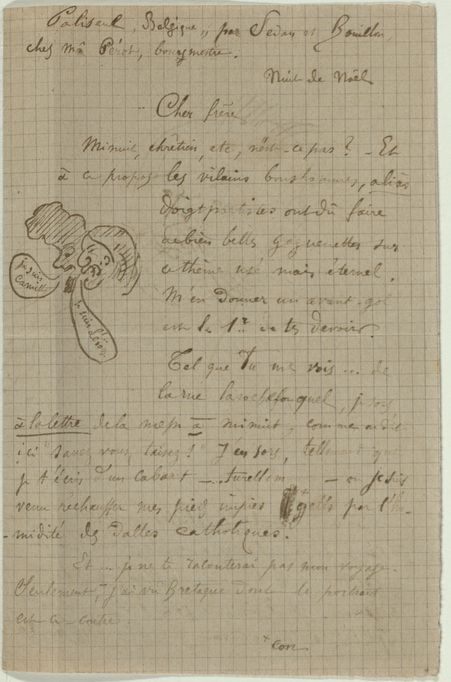 Paliseul, Belgique, par Sedan et Bouillon,
chez Mr Pérot, bourgmestre.
Nuit de Noël
Cher frère
Minuit, chrétien, etc, n'est-ce pas? - Et
à ce propos les vilains bonshommes, alias
ont dû faire
de bien belles sur
ce thème usé mais éternel.
M'en donner un avant-goût
est le 1er de tes devoirs.
je suis Camille
je suis
Tel que tu me vois ... de
la rue Larochefoucault, je sors
à la lettre de la messe à minuit, comme on dit
ici "savez vous, taisez!" J'en sors, tellement que
je t'écris d'un cabaret - - où je suis
venu rechauffer mes pieds impies gelés par l'hu-
-midité des dalles catholiques.
Et ... je ne te raconterai pas mon voyage.
Seulement, j'ai vu Bretagne dont le portrait
est ci contre